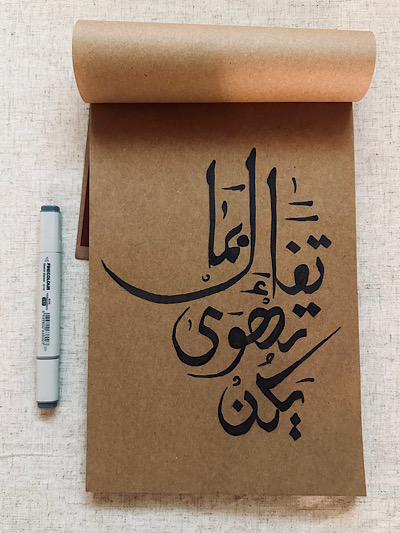 تفاءل بما
تهوى
يكن
FINECOLOUR